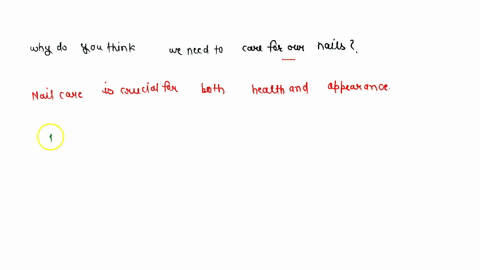 why do you think we need to care for our nails?.
Nail care is crucial for both health and appearance.